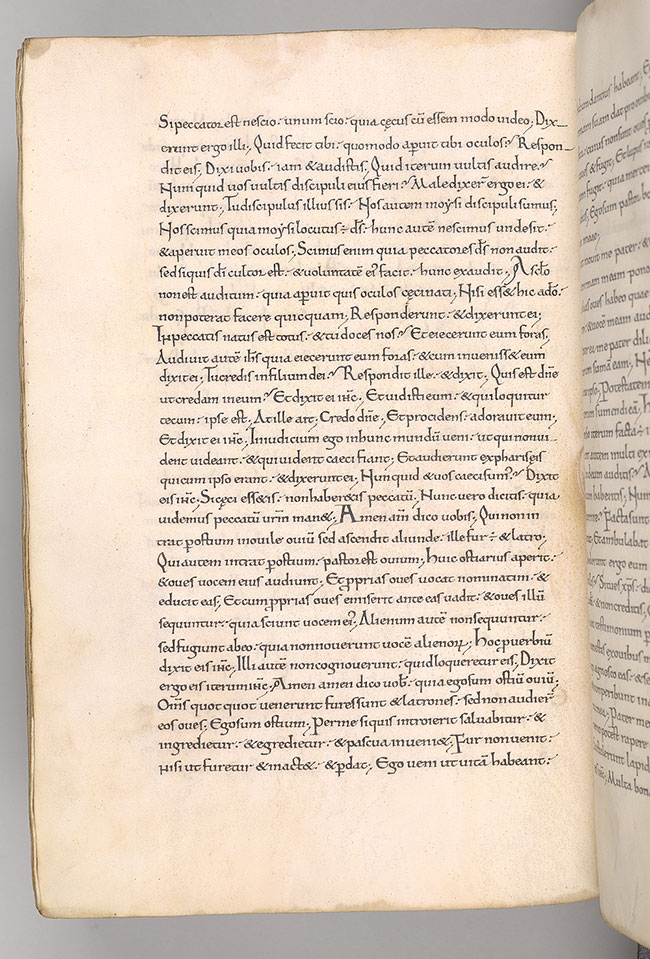 Si peccator est nescio·unum scio·quia cęcus cũ essem modo video; Dix-
erunt ergo illi; Quid fecit tibi·quomodo aperuit tibi oculos? Respon-
dit eis; Dixi uobis·iam & audistis; Quid iterum uultis audire?
Num quid uos uultis discipuli eius fieri? Maledixer̃ ergo ei·&
dixerunt; Tu discipulus illius sis·Nos autem moysi discipuli sumus;
Nos scimus quia moysi locutus ÷ d̃s·hunc autẽ nescimus unde sit·
& aperuit meos oculos; Scimus enim quia peccatores d̃s non audit·
sed si quis d̃i cultor est·& voluntatẽ ei' facit·hunc exaudit; A sc̃lo
non est auditum·quia aperuit quis oculos cęci nati; Nisi ess& hic a d̃o·
non poterat facere quicquam; Responderunt·& dixerunt ei;
In peccatis natus es totus·& tu doces nos? Et eiecerunt eum foras;
Audiuit autẽ ih̃s quia eiecerunt eum foras·& cum inueniss& eum
dixit ei; Tu credis in filium dei? Respondit ille·& dixit; Quis est dñe
ut credam in eum? Et dixit ei ih̃c; Et uidisti eum·& qui loquitur
tecum·ipse est; At ille ait; Credo dñe; Et procidens·adorauit eum;
Et dixit ei ih̃c; In iudicium ego in hunc mundũ ueni·ut qui non ui-
dent uideant·& qui uident caeci fiant; Et audierunt ex phariseis
qui cum ipso erant·& dixerunt ei; Nunquid & uos caeci sum'? Dixit
eis ih̃c; Si cęci ess&is·non haber&is peccatũ; Nunc uero dicitis·quia
uidemus peccatũ ur̃m man&; Amen am̃ dico uobis; Qui non in
trat p ostium in ouile ouiũ sed ascendit aliunde·ille fur ÷ & latro;
Qui autem intrat p ostium·pastor est ouium; Huic ostiarius aperit·
& oues uocem eius audiunt; Et p̱prias oues uocat nominatim·&
educit eas; Et cum p̱prias oues emiserit ante eas uadit·& oues illũ
sequuntur·quia sciunt uocem ei'; Alienum autẽ non sequuntur·
sed fugiunt ab eo·quia non nouerunt uocẽ alienoꝝ; Hoc p̱uerbiũ
dixit eis ih̃c; Illi autẽ non cognouerunt·quid loqueretur eis; Dixit
ergo eis iterum ih̃c; Amen amen dico uob'·quia ego sum ostiũ ouiũ;
Om̃s quot quot uenerunt fures sunt & latrones·sed non audier̃
eos oues; Ego sum ostium; Per me si quis introierit saluabitur·&
ingredietur·& egredietur·& pascua inueni&; Fur non uenit·
nisi ut furetur·& mact&·& p̱dat; Ego ueni ut uitã habeant·